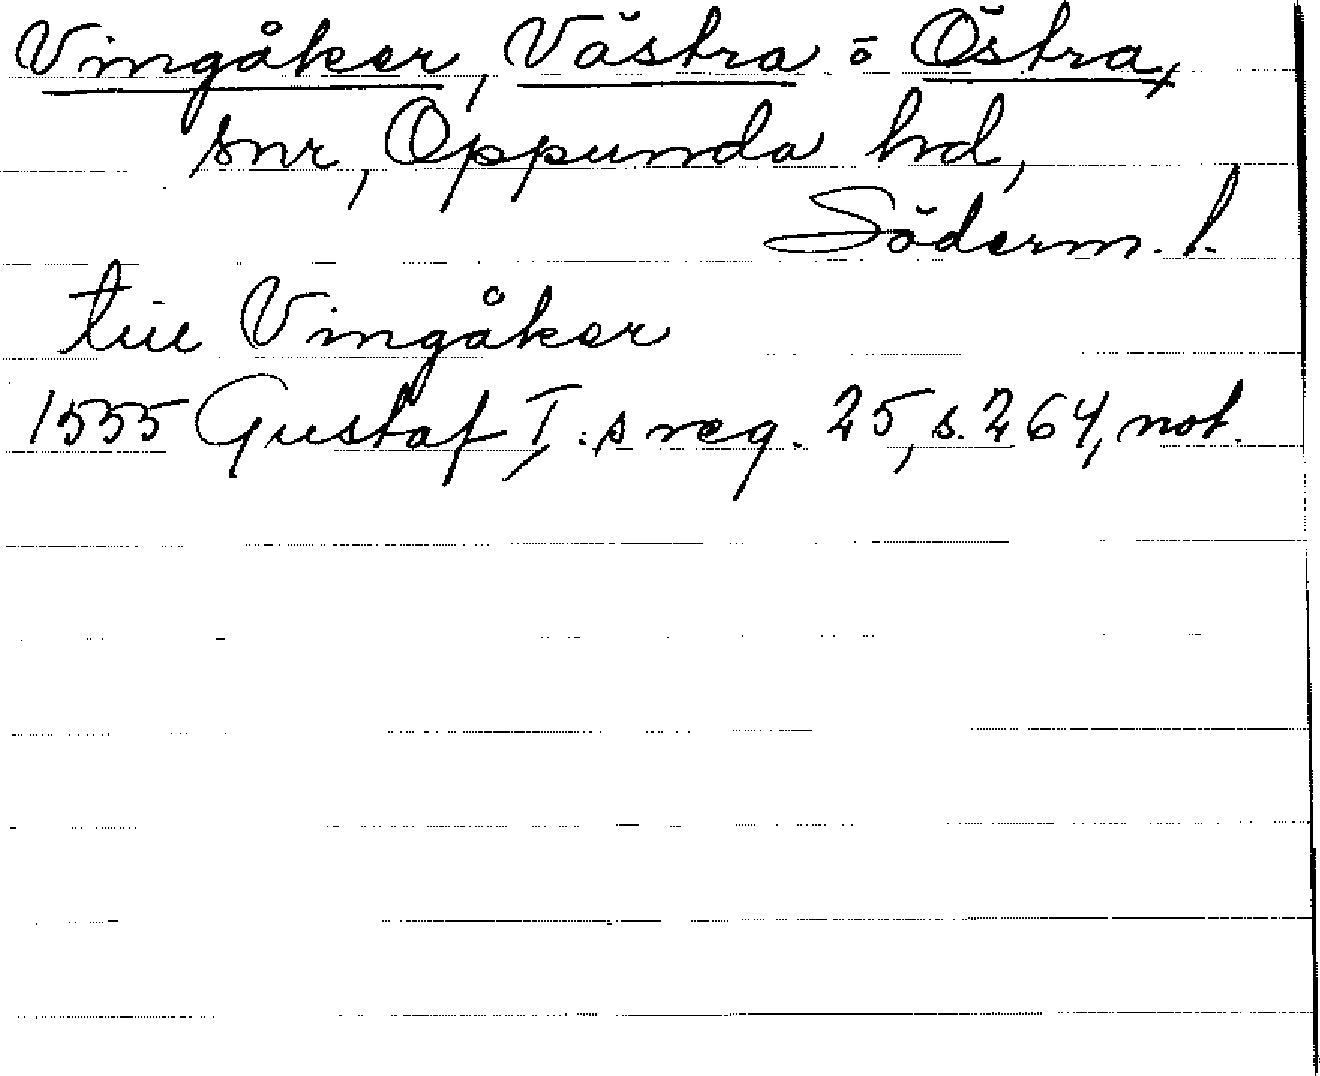 Vingåker, Västra o Östra,
snr, Oppunda hd,
Söderm. l.
till Vingåker
1555 Gustaf I:s reg. 25, s. 264, not.